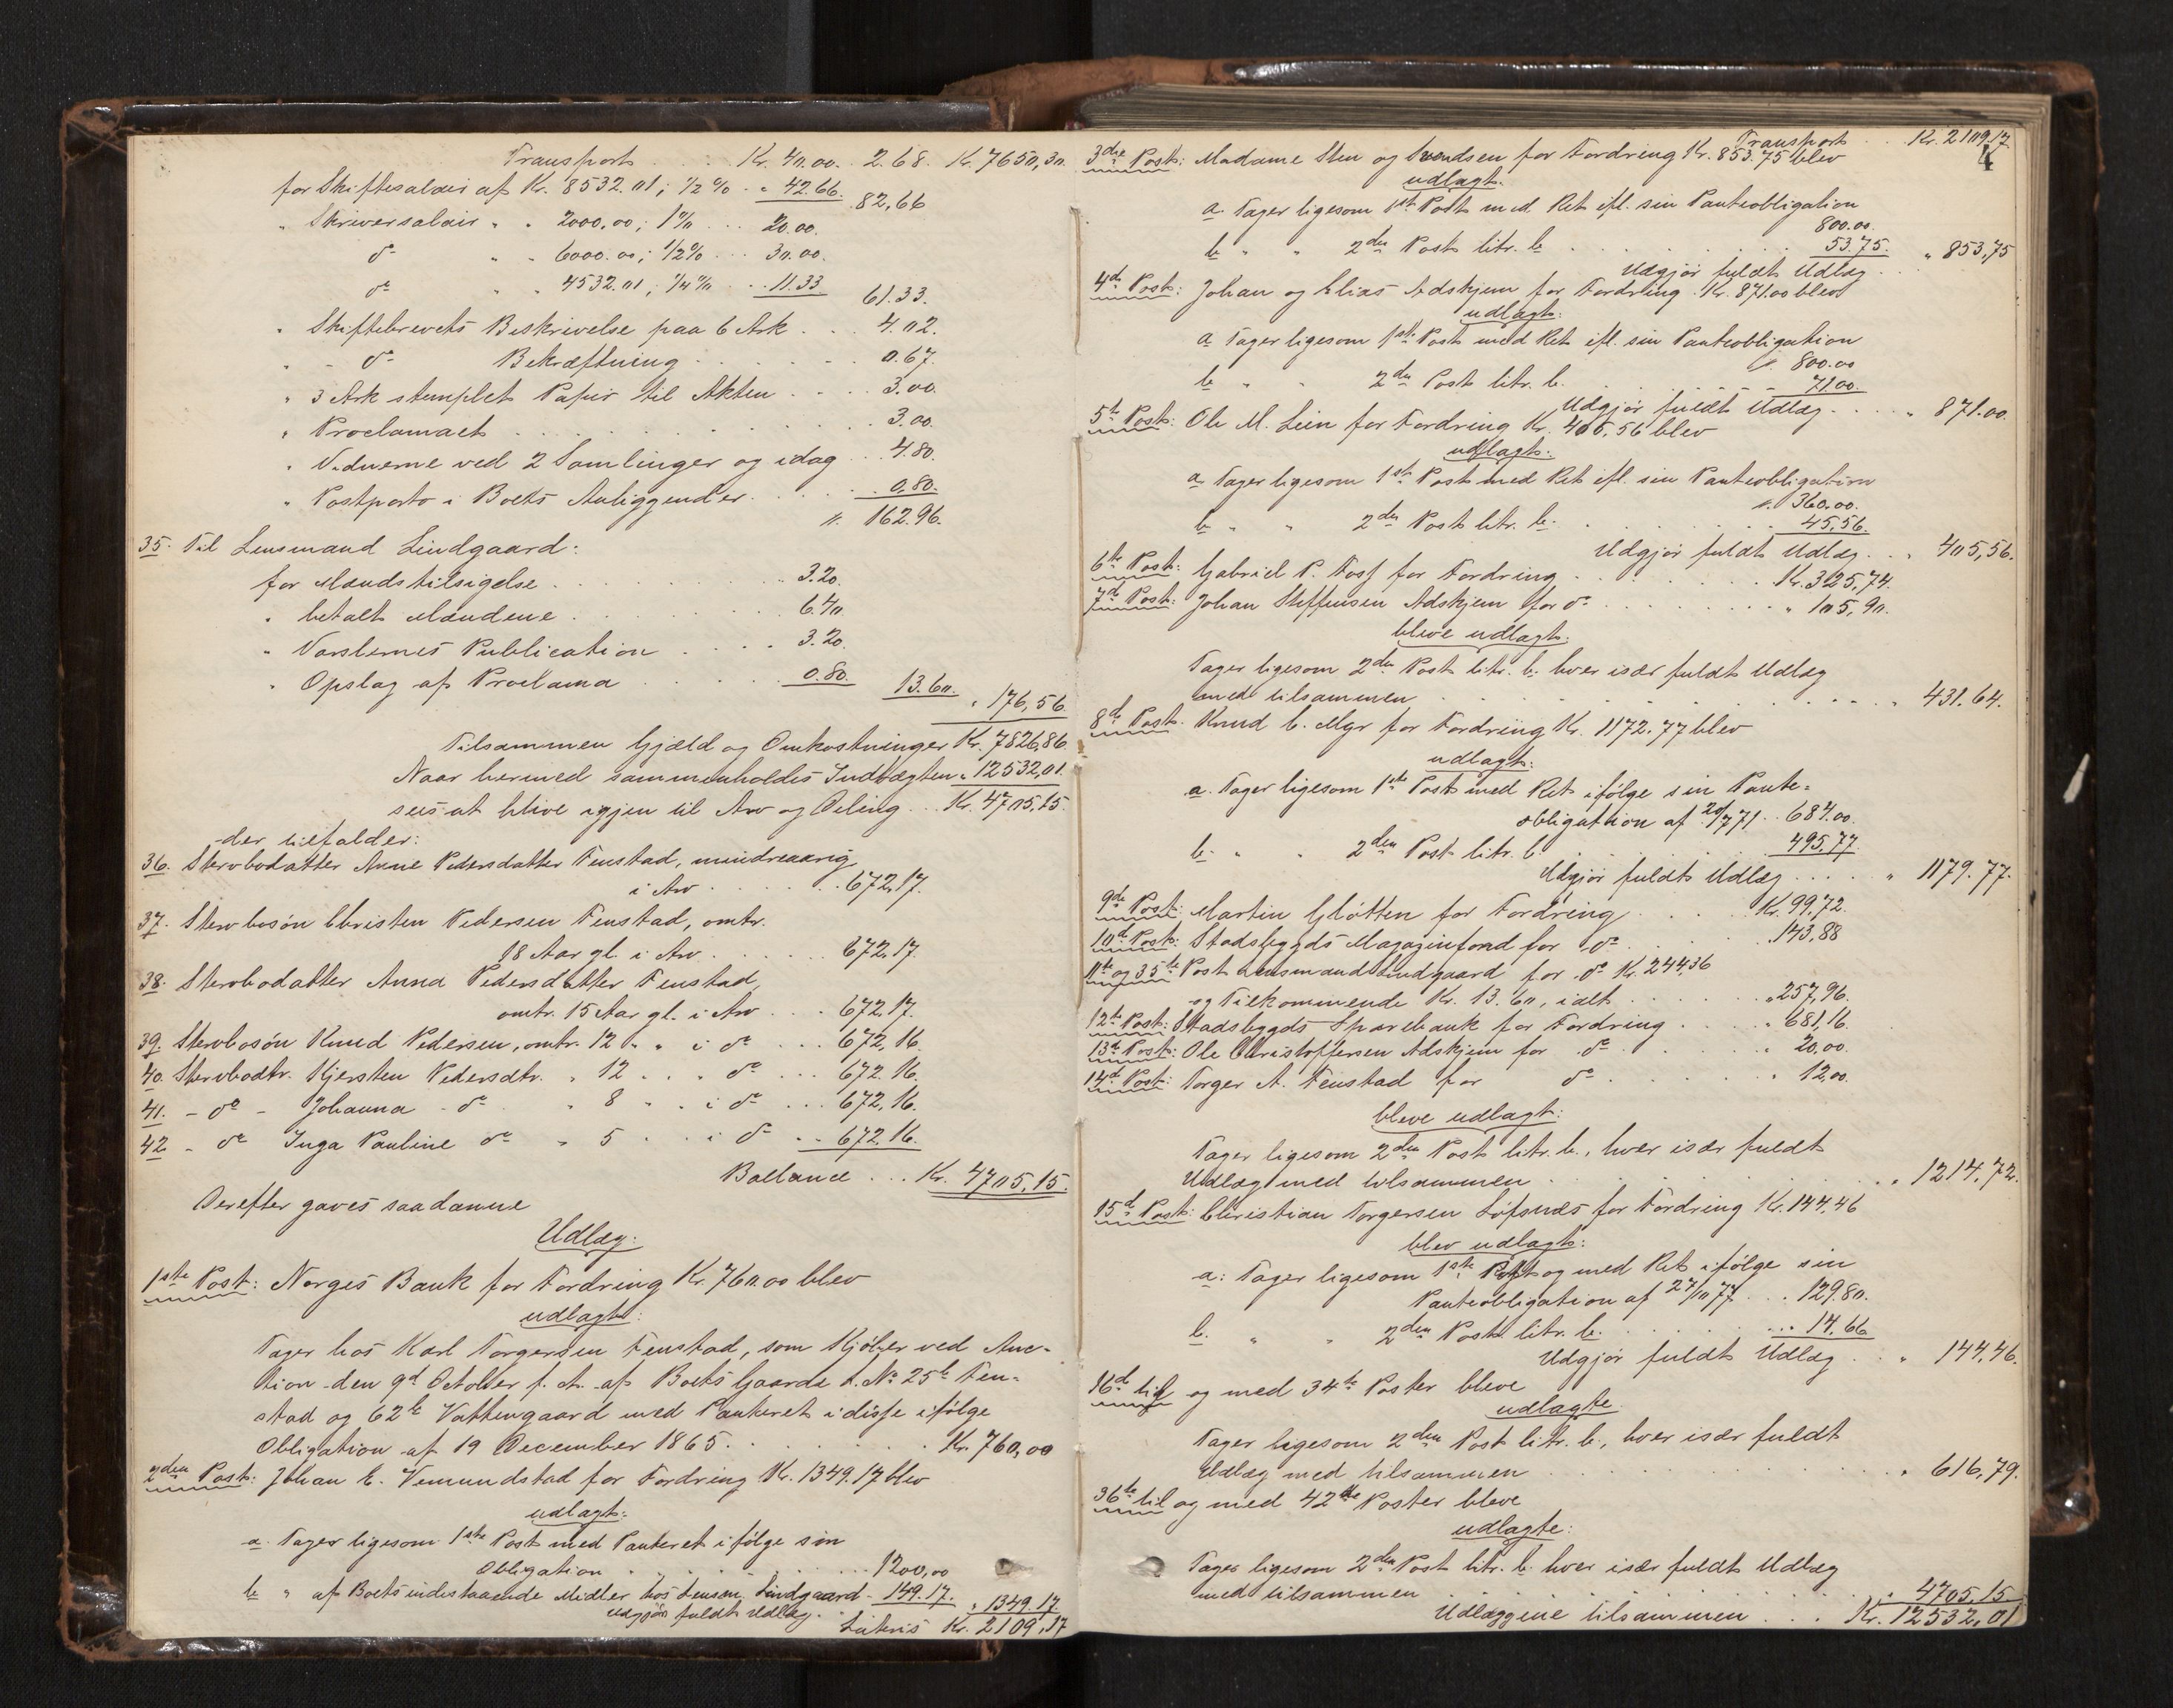 Transport . . Kr. 40.00. 2.68. Kr. 7650,30.
for Skiftesalair af Kr. 8532.01; 1/2 % . „ 42.66. 82,66
„ Skriversalair „ „ 2000,00; 1 % . . . 20.00.
do „ „ 6000.00; 1/2 % . . . 30.00.
do „ „ 4532.01; 1/4 % . . 11.33 61.33.
„ Skiftebrevets Beskrivelse paa 6 Ark . . . 4.02.
„ - do Bekræftning . . . . . . 0.67.
„ 3 Ark stemplet Papir til Akten . . . . 3.00.
„ Proclamaet . . . . . . . . . 3.00.
„ Vidnerne ved 2 Samlinger og idag . . 4.80.
„ Postporto i Boets Anliggender . . . . . 0,80.
„ 162.96.
35. Til Lensmand Lindgaard:
for Mændstilsigelse . . . . . . . 3.20.
„ betalt Mændene . . . . . . 6.40.
„ Varslernes Publication . . . . 3.20.
„ Opslag af Proclama . . . . . 0.80. 13.60. „ 176,56.
Tilsammen Gjæld og Omkostninger Kr. 7826,86.
Naar hermed sammenholdes Indtægten „ 12532,01.
sees at blive igjen til Arv og Deling . . Kr. 4705,15.
der tilfalder:
36. Stervbodatter Anne Pedersdatter Fenstad, mindreaarig
i Arv . . . . . . . 672,17.
37. Stervbosøn Christen Pedersen Fenstad, omtr.
18 Aar gl. i Arv . . . . . . 672,17.
38. Stervbodatter Anna Pedersdatter Fenstad,
omtr. 15 Aar gl. i Arv . . . 672,17.
39. Stervbosøn Knud Pedersen, omtr. 12 „ „ i do . . . 672,16.
40. Stervbodtr. Kjersten Pedersdtr. „ 12 „ „ „ do . . . 672.16.
41. - do - Johanna - do - „ 8 „ „ i do . . . 672,16.
42. - do Inga Pauline do „ 5 „ „ i do . . . 672,16.
Ballance . . . Kr. 4705,15.
Derefter gaves saadanne
Udlæg:
1ste Post: Norges Bank for Fordring Kr. 760.00 blev
udlagt:
Tager hos Karl Torgersen Fenstad, som Kjøber ved Auc-
tion den 9d October f. A. af Boets Gaarde L. No 25b Fen-
stad og 62b Vattengaard med Panteret i disse ifølge
Obligation af 19 December 1865 . . . . . . . Kr. 760,00
2den Post: Johan E. Vemundstad for Fordring Kr. 1349.17 blev
udlagt:
a. Tager ligesom 1ste Post med Panteret ifølge sin
Obligation . . . . . . . 1200,00
b. „ af Boets indestaaende Midler hos Lensm. Lindgaard - 149.17.
Udgjør fuldt Udlæg . „ 1349.17
Lateris Kr. 2109,17
Transport . . Kr. 2109,17.
4
3die Post: Madame Sten og Svendsen for Fordring Kr. 853.75 blev
udlagt:
a. Tager ligesom 1ste Post med Ret ifl. sin Panteobligation
800.00.
b. „ „ 2den Post litr. b . . . . . 53.75.
Udgjør fuldt Udlæg . . „ 853,75
4de Post: Johan og Elias Adskjem for Fordring Kr. 871.00 blev
udlagt:
a. Tager ligesom 1ste Post med Ret ifl. sin Panteobligation
800.00
b. „ „ 2den Post litr. b. . . . . . 71.00.
Udgjør fuldt Udlæg . . . . „ 871.00.
5te Post: Ole M. Lein for Fordring Kr. 405.56 blev
udlagt:
a. Tager ligesom 1ste Post med Ret ifl. sin Panteobligation
„ 360.00.
b. „ „ 2den Post litr. b. . . . . . 45,56.
Udgjør fuldt Udlæg . . „ 405,56.
6te Post: Gabriel P. Foss for Fordring . . . . . . Kr. 325,74.
7de Post: Johan Steffensen Adskjem for do . . . . . . . „ 105,90.
bleve udlagt:
Tager ligesom 2den Post litr. b. hver især fuldt Udlæg
med tilsammen . . . . . . . . . . „ 431.64.
8de Post. Knud C. Myr for Fordring Kr. 1172.77 blev
udlagt:
a. Tager ligesom 1ste Post med Ret ifølge sin Pante-
obligation af 20/7 71 . . 684.00.
b. „ „ 2den Post litr. b. . . . . 495,77
Udgjør fuldt Udlæg . . . . . „ 1179.77.
9de Post: Martin Gløtten for Fordring . . . . Kr. 99,72.
10de Post: Stadsbygds Magazinfond for do . . . . . 143,88
11te og 35te Post Lensmand Lindgaard for do Kr. 244.36
og Tilkommende Kr. 13.60, ialt . . . . . „ 257,96.
12te Post: Stadsbygds Sparebank for Fordring . . . . „ 681,16.
13de Post: Ole Christoffersen Adskjem for do . . . . . „ 20,00.
14de Post: Torger A. Fenstad for do . . . . . . „ 12,00.
bleve udlagt:
Tager ligesom 2den Post litr. b., hver især fuldt
Udlæg med tilsammen . . . . . . . . „ 1214,72.
15de Post: Christian Torgersen Løfsnes for Fordring Kr. 144,46
blev udlagt:
a: Tager ligesom 1ste Post og med Ret ifølge sin
Panteobligation af 27/10 77 . . . 129.80.
b. „ „ 2den Post litr. b. . . . . . . 14,66
Udgjør fuldt Udlæg . . „ 144,46.
16de til og med 34te Poster bleve
udlagte
Tager ligesom 2den Post litr. b., hver især fuldt
Udlæg med tilsammen . . . . . . . . „ 616,79.
36te til og med 42de Poster bleve
udlagte:
Tager ligesom 2den Post litr. b. hver især fuldt Udlæg
med tilsammen . . . . . . . . „ 4705,15
Udlæggene tilsammen . . . Kr. 12532,01